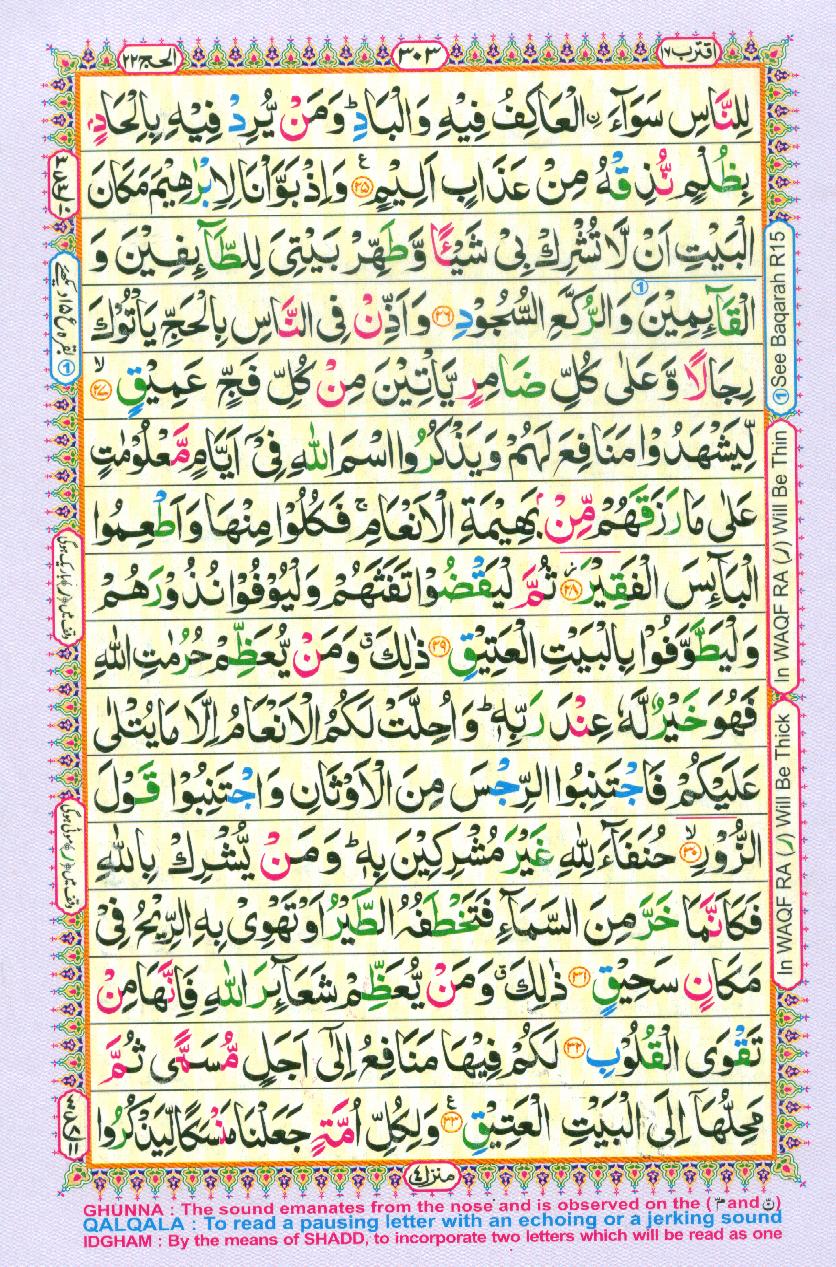 اقترب ١٧
٣٠٣
الحج ٢٢
لِلنَّاسِ سَوَآءَ ۨالْعَاكِفُ فِيْهِ وَالْبَادِ ؕ وَمَنْ يُّرِدْ فِيْهِ بِاِلْحَادٍۭ
بِظُلْمٍ نُّذِقْهُ مِنْ عَذَابٍ اَلِيْمٍ ﴿٢٥﴾ وَاِذْ بَوَّاْنَا لِاِبْرٰهِيْمَ مَكَانَ
الْبَيْتِ اَنْ لَّا تُشْرِكْ بِىْ شَيْئًا وَّطَهِّرْ بَيْتِىَ لِلطَّآئِفِيْنَ وَ
الْقَآئِمِيْنَ وَالرُّكَّعِ السُّجُوْدِ ﴿٢٦﴾ وَاَذِّنْ فِى النَّاسِ بِالْحَجِّ يَاْتُوْكَ
رِجَالًا وَّعَلٰى كُلِّ ضَامِرٍ يَّاْتِيْنَ مِنْ كُلِّ فَجٍّ عَمِيْقٍ ۙ﴿٢٧﴾
لِّيَشْهَدُوْا مَنَافِعَ لَهُمْ وَيَذْكُرُوا اسْمَ اللّٰهِ فِىْٓ اَيَّامٍ مَّعْلُوْمٰتٍ
عَلٰى مَا رَزَقَهُمْ مِّنْۢ بَهِيْمَةِ الْاَنْعَامِ ۚ فَكُلُوْا مِنْهَا وَاَطْعِمُوا
الْبَآئِسَ الْفَقِيْرَ ﴿٢٨﴾ ثُمَّ لْيَقْضُوْا تَفَثَهُمْ وَلْيُوْفُوْا نُذُوْرَهُمْ
وَلْيَطَّوَّفُوْا بِالْبَيْتِ الْعَتِيْقِ ﴿٢٩﴾ ذٰلِكَ ۗ وَمَنْ يُّعَظِّمْ حُرُمٰتِ اللّٰهِ
فَهُوَ خَيْرٌ لَّهٗ عِنْدَ رَبِّهٖ ؕ وَاُحِلَّتْ لَكُمُ الْاَنْعَامُ اِلَّا مَا يُتْلٰى
عَلَيْكُمْ فَاجْتَنِبُوا الرِّجْسَ مِنَ الْاَوْثَانِ وَاجْتَنِبُوْا قَوْلَ
الزُّوْرِ ۙ﴿٣٠﴾ حُنَفَآءَ لِلّٰهِ غَيْرَ مُشْرِكِيْنَ بِهٖ ؕ وَمَنْ يُّشْرِكْ بِاللّٰهِ
فَكَاَنَّمَا خَرَّ مِنَ السَّمَآءِ فَتَخْطَفُهُ الطَّيْرُ اَوْ تَهْوِىْ بِهِ الرِّيْحُ فِىْ
مَكَانٍ سَحِيْقٍ ﴿٣١﴾ ذٰلِكَ ۗ وَمَنْ يُّعَظِّمْ شَعَآئِرَ اللّٰهِ فَاِنَّهَا مِنْ
تَقْوَى الْقُلُوْبِ ﴿٣٢﴾ لَكُمْ فِيْهَا مَنَافِعُ اِلٰٓى اَجَلٍ مُّسَمًّى ثُمَّ
مَحِلُّهَآ اِلَى الْبَيْتِ الْعَتِيْقِ ﴿٣٣﴾ وَلِكُلِّ اُمَّةٍ جَعَلْنَا مَنْسَكًا لِّيَذْكُرُوا
① See Baqarah R15
In WAQF RA (ر) Will Be Thin
In WAQF RA (ر) Will Be Thick
منزل ٤
GHUNNA : The sound emanates from the nose and is observed on the (مّ and نّ)
QALQALA : To read a pausing letter with an echoing or a jerking sound
IDGHAM : By the means of SHADD, to incorporate two letters which will be read as one